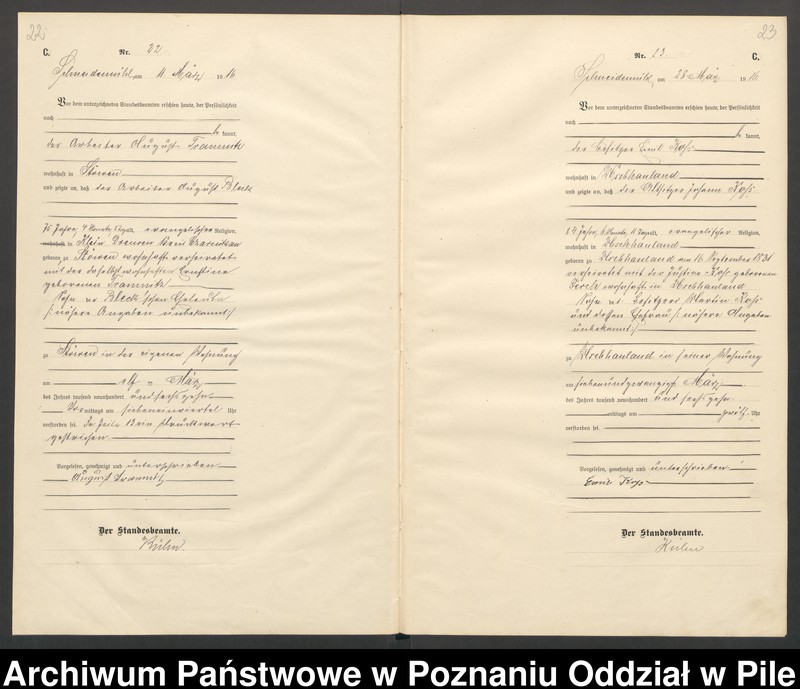 22
C.
Nr. 22
Schneidemühl, am 11. März 1916
Vor dem unterzeichneten Standesbeamten erschien heute, der Persönlichkeit
nach
be kannt,
der Arbeiter August
wohnhaft in Stöwen
und zeigte an, daß der Arbeiter August Bleck
75 Jahre, 4 Monate, alt, evangelischer Religion,
wohnhaft in Klein Drensen Kreis Czarnikau
geboren zu Stöwen wohnhaft verheiratet
mit der daselbst wohnhaften Ernstine
geborenen
Sohn der Bleck'schen Eheleute
(:nähere Angaben unbekannt:)
zu Stöwen in der eigenen Wohnung
am elf ten März
des Jahres tausend neunhundert und sechzehn
Vormittags um siebeneinviertel Uhr
verstorben sei. Druckwort
gestrichen.
Vorgelesen, genehmigt und unterschrieben
August
Der Standesbeamte.
23
C.
Nr. 23
Schneidemühl, am 28. März 1916
Vor dem unterzeichneten Standesbeamten erschien heute, der Persönlichkeit
nach
be kannt,
der Besitzer Emil
wohnhaft in
und zeigte an, daß der Altsitzer Johann
84 Jahre, 6 Monate, 11 Tage alt, evangelischer Religion,
wohnhaft in
geboren zu am 16. September 1831
verheiratet mit der Justine geborenen
wohnhaft in
Sohn des Besitzers Martin
und dessen Ehefrau (:nähere Angaben
unbekannt:)
zu in seiner Wohnung
am siebenundzwanzigsten März
des Jahres tausend neunhundert und sechzehn
mittags um zwölf Uhr
verstorben sei.
Vorgelesen, genehmigt und unterschrieben
Emil
Der Standesbeamte.
Archiwum Państwowe w Poznaniu Oddział w Pile